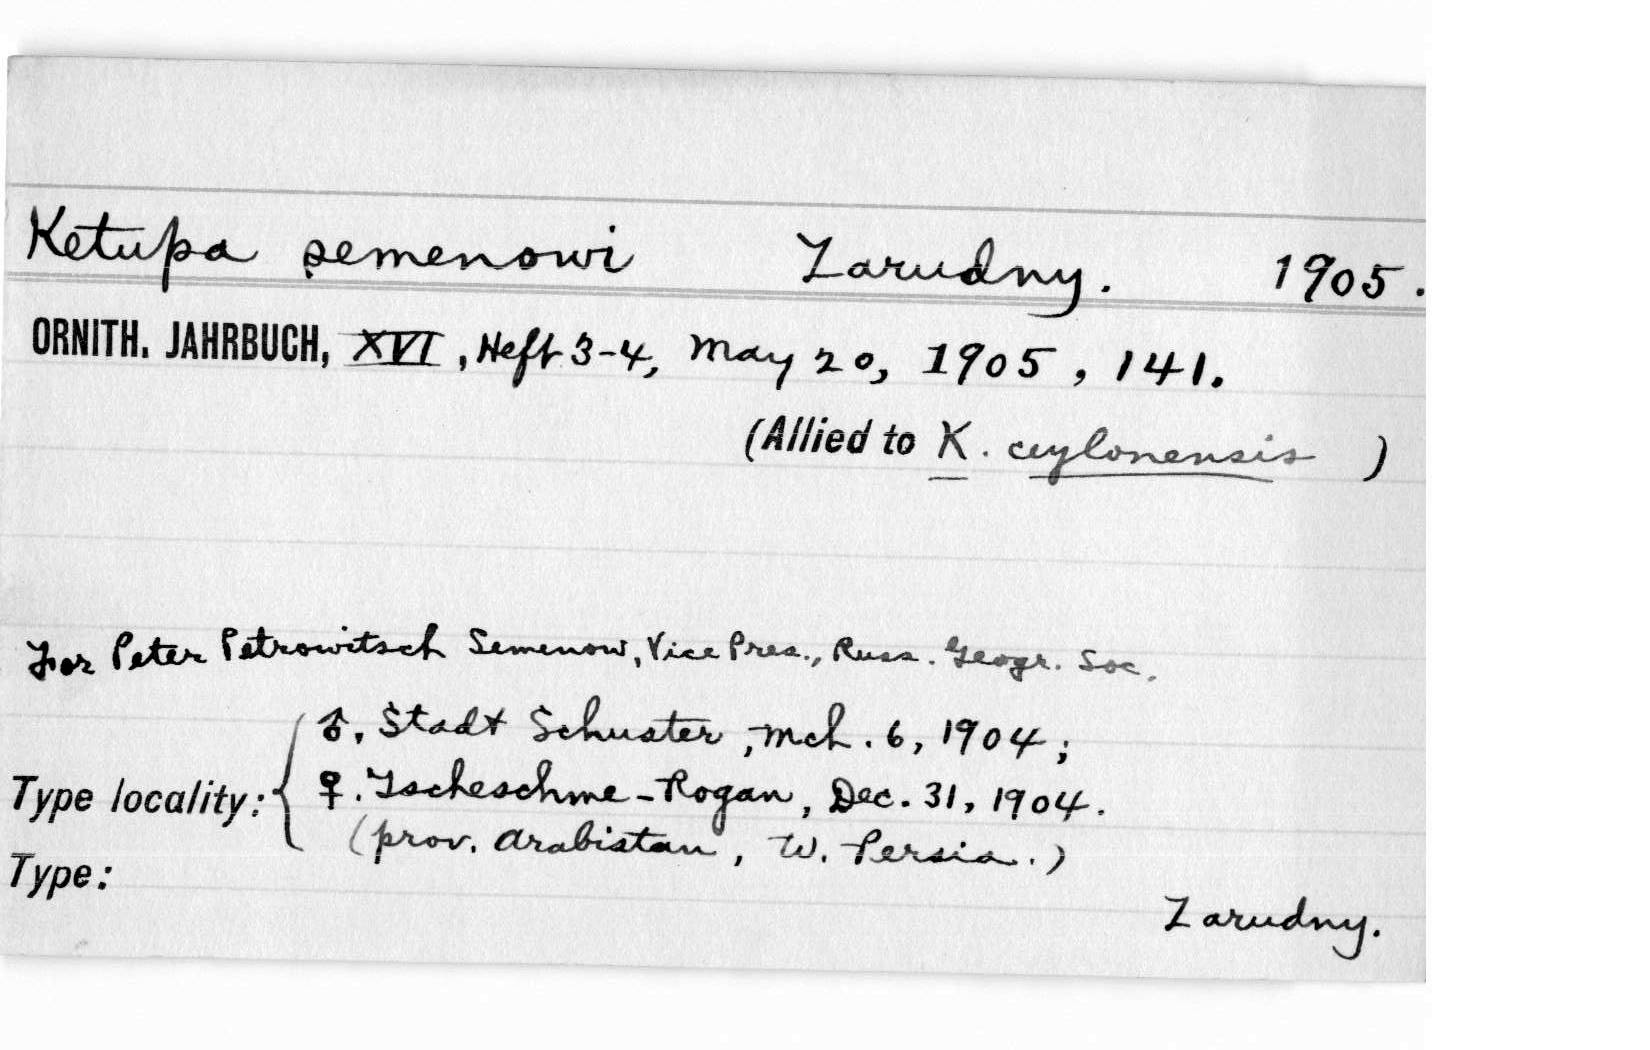 Ketupa semenowi Zarudny. 1905.
ORNITH. JAHRBUCH, XVI, Heft 3-4, May 20, 1905, 141.
(Allied to K. ceylonensis )
For Peter Petrowitsch Semenow, Vice Pres., Russ. Geogr. Soc.
♂, Stadt Schuster, Mch. 6, 1904;
Type locality: { ♀. Tscheschme-Rogan, Dec. 31, 1904.
(prov. Arabistan, W. Persia.)
Type:
Zarudny.